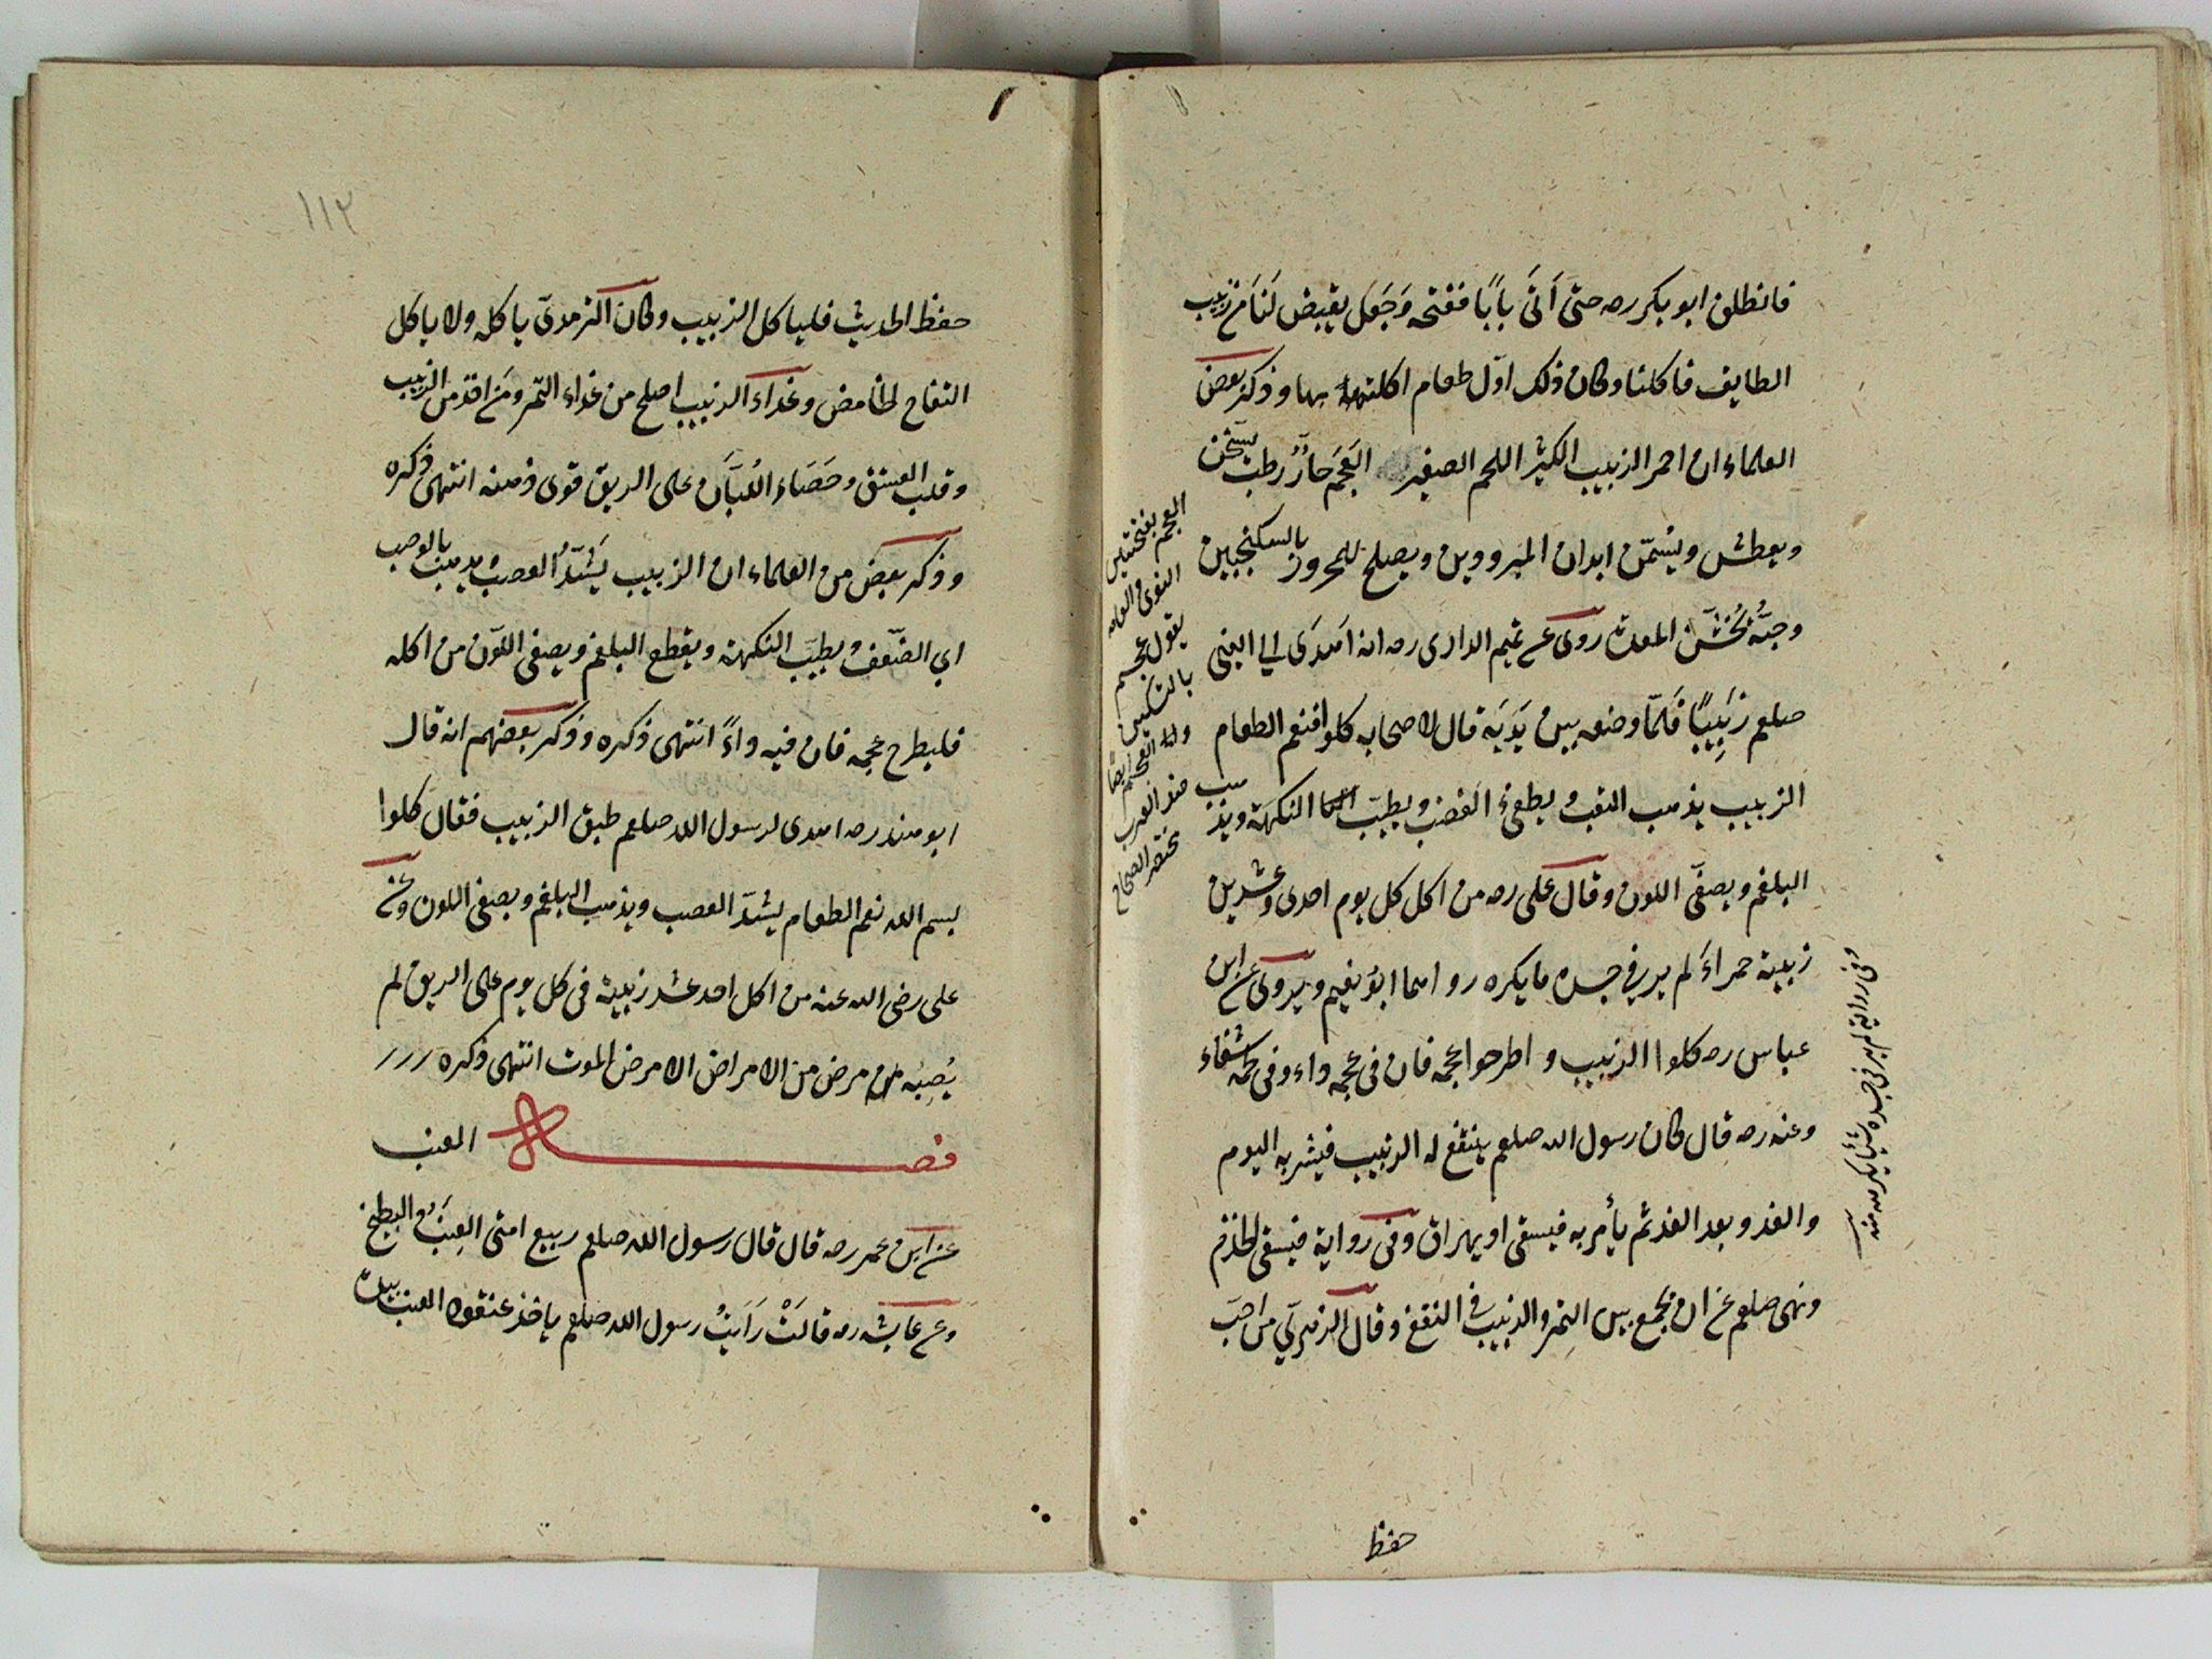 فانطلق ابو بكر ره حتى اَتَى بَابًا ففتحه وَجَعَلَ يقبض لَنَا مِنْ زبيب
الطايف فاكلنا وكان ذلك اوّل طعام اكلته بها وذكر بعض
العلماء ان احمر الزبيب الكثير اللحم الصغير العَجَم حارٌّ رطب يسخّن
ويعطش ويُسمّن ابدان المبرودين ويصلح للمحرور بالسكنجبين
المعدة روى عن تميم الدارى ره انه اَهدَى الى النبى
صلعم زَبِيبًا فَلَمّا وضعه بين يَدَيَه قال لاصحابه كلوا فنعم الطعام
الزبيب يذهب التعب ويطفىُٔ الغضب ويطيّب النكهة ويذهب
البلغم ويصفّى اللون وقال على ره من اكل كل يوم احدى وعشرين
زبيبة حمراءَ لم ير فى جسده ما يكره رواهما ابُو نعيم ويروى عن ابن
عباس ره كلوا الزبيب واطرحوا عجمه فان فى عجمه داء وفى لحمه شفاء
وعنه ره قال كان رسول الله صلعم ينتقع له الزبيب فيشربه اليوم
والغد وبعد الغد ثم يأمر به فيسقى او يهراق وفى رواية فيسقى الخادم
ونهى صلعم عن ان يجمع بين التمر والزبيب فى النقع وقال الزهرىّ من احبّ
العجم بفتحتين
النوى والعامه
يقول عجم
بالتسكين
مختصر الصحاح
وفى رواية لم ير فى جسده شيئا يكره منه
حفظ
١١٢
حفظ الحديث فلياكل الزبيب وكان الزهدىّ ياكله ولا ياكل
التفاح الحامض وغداء الزبيب اصلح من غداء التمر ومَن اخذ من الزبيب
وقلب الفستق وحَصَاء اللُبَان على الريق قوى ذهنه انتهى ذكره
وذكر بعض من العلماء ان الزبيب يَشُدُّ العصب يذهب بالوصب
اى الضّعف ويطيّب النكهة ويقطع البلغم ويصفى اللّون من اكله
فليطرح عجمه فان فيه داءً انتهى ذكره وذكر بعضهم انه قال
ابو هند ره اهدى لرسول الله صلعم طبق الزبيب فقال كلوا
بسم الله نعم الطعام يشدّ العصب ويذهب البلغم ويصفى اللون وعن
على رضى الله عنه من اكل احد عشر زبيبة فى كل يوم على الريق لم
يُصِبْه من مرض من الامراض الا مرض الموت انتهى ذكره
فصل العنب
عن ابن عمر ره قال قال رسول الله صلعم ربيع امتى العِنَبُ والبطيخ
وعن عايشه ره قالَتْ رَاَيتُ رسول الله صلعم ياخذ عنقود العنب بيده